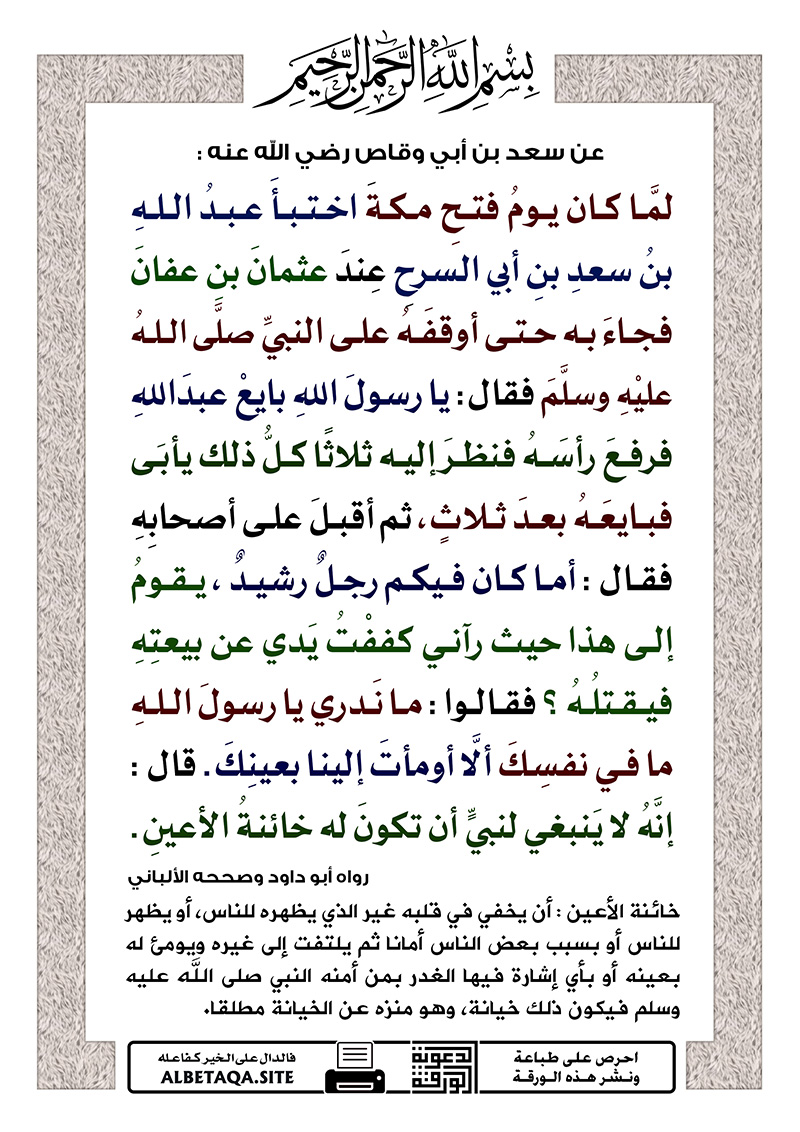 بِسْمِ اللَّهِ الرَّحْمَٰنِ الرَّحِيمِ
عن سعد بن أبي وقاص رضي الله عنه :
لمَّا كان يومُ فتحِ مكةَ اختبأَ عبدُ اللهِ
بنُ سعدِ بنِ أبي السرحِ عِندَ عثمانَ بنِ عفانَ
فجاءَ به حتى أوقفَهُ على النبيِّ صلَّى اللهُ
عليْهِ وسلَّمَ فقال : يا رسولَ اللهِ بايِعْ عبدَاللهِ
فرفعَ رأسَهُ فنظرَ إليه ثلاثًا كلُّ ذلك يأبَى
فبايعَهُ بعدَ ثلاثٍ ، ثم أقبلَ على أصحابِهِ
فقال : أما كان فيكم رجلٌ رشيدٌ ، يقومُ
إلى هذا حيث رآني كففْتُ يَدي عن بيعتِهِ
فيقتلُهُ ؟ فقالوا : ما نَدري يا رسولَ اللهِ
ما في نفسِكَ ألَّا أومأتَ إلينا بعينِكَ . قال :
إنَّهُ لا يَنبغي لنبيٍّ أن تكونَ له خائنةُ الأعينِ .
رواه أبو داود وصححه الألباني
خائنة الأعين : أن يخفي في قلبه غير الذي يظهره للناس، أو يظهر
للناس أو بسبب بعض الناس أمانا ثم يلتفت إلى غيره ويومئ له
بعينه أو بأي إشارة فيها الغدر بمن أمنه النبي صلى الله عليه
وسلم فيكون ذلك خيانة، وهو منزه عن الخيانة مطلقا.
احرص على طباعة
ونشر هذه الورقة
الورقة الدعوية
فالدال على الخير كفاعله
ALBETAQA.SITE